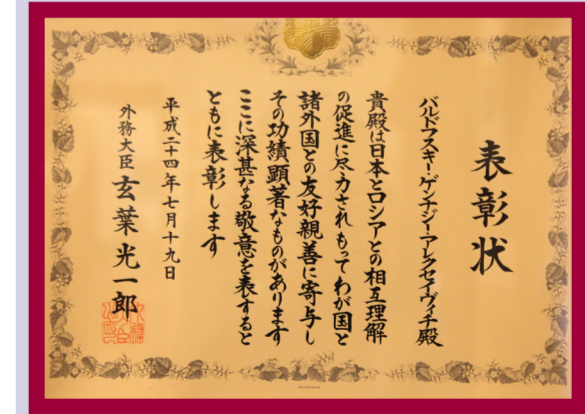 表彰状
バルドフスキー・ゲンナジー・アレクセーヴィチ殿
貴殿は日本とロシアとの相互理解
の促進に尽力されもってわが国と
諸外国との友好親善に寄与し
その功績顕著なものがあります
ここに深甚なる敬意を表すると
ともに表彰します
平成二十四年七月十九日
外務大臣 玄葉光一郎